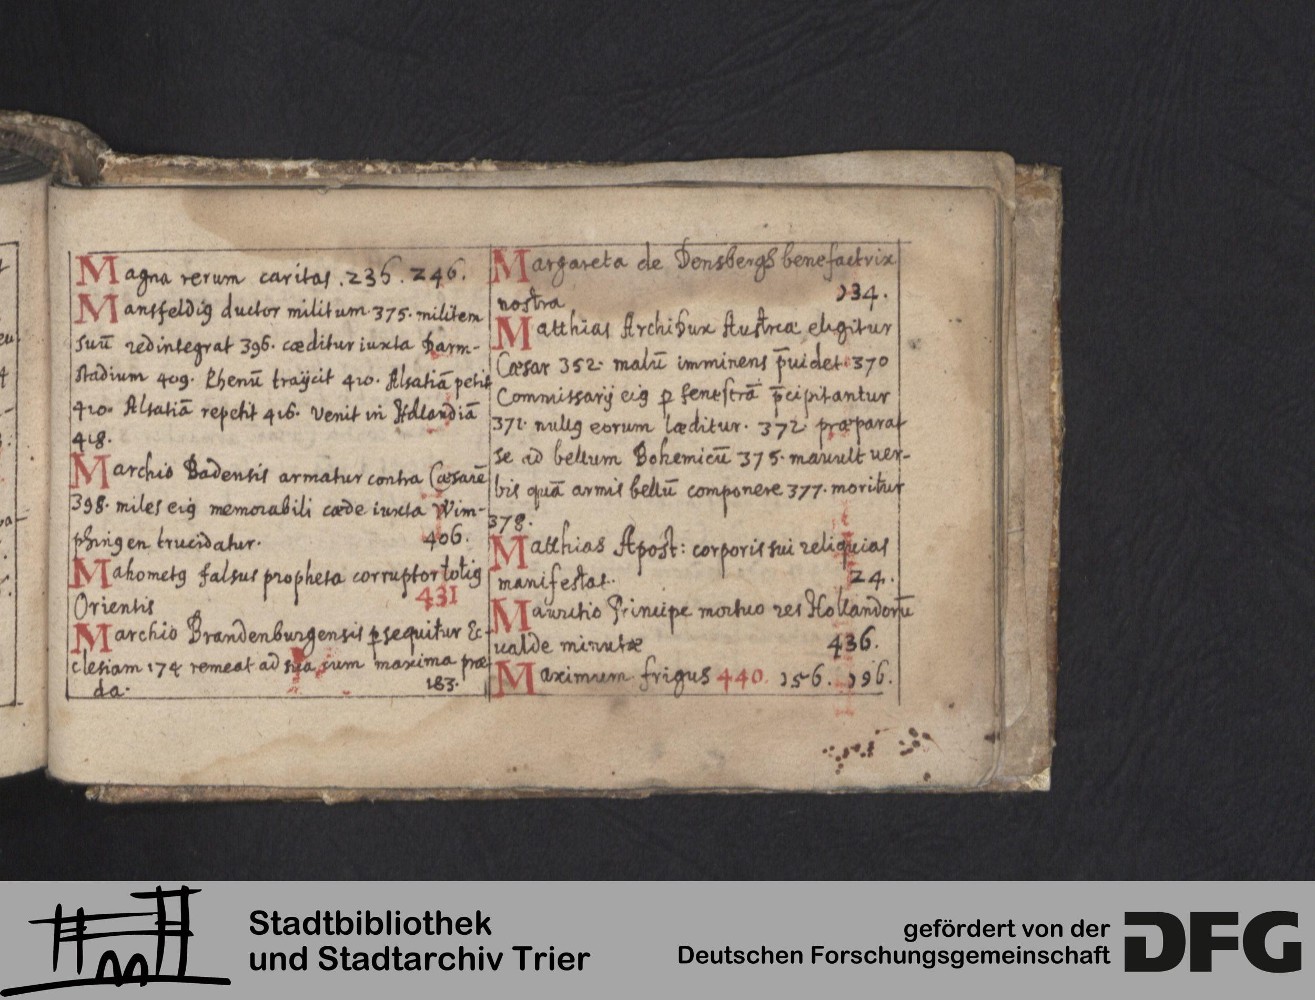 Magna rerum caritas. 236. 246.
Mansfeldiꝰ ductor militum. 375. militem
suū redintegrat 396. cæditur iuxta Harm-
stadium 409. Rhenū traijcit 410. Alsatiā petit
410. Alsatiā repetit 416. venit in Hollandiā
418.
Marchio Badensis armatur contra Cæsarē
398. miles eiꝰ memorabili cæde iuxta Wim-
phingen trucidatur. 406.
Mahometꝰ falsus propheta corruptor totiꝰ
Orientis 431
Marchio Brandenburgensis ꝑsequitur Ec-
clesiam 174 remeat ad sua cum maxima præ
da. 183.
Margareta de Densbergh benefactrix
nostra 134.
Matthias Archidux Austriæ eligitur
Cæsar 352. malū imminens p̄uidet 370
Commissarij eiꝰ ꝑ fenestrā p̄cipitantur
371. nullꝰ eorum læditur. 372. præparat
se ad bellum Bohemicū 375. mauult uer-
bis quā armis bellū componere 377. moritur
378.
Matthias Apost: corporis sui reliquias
manifestat. 24.
Mauritio Principe mortuo res Hollandorū
ualde minutæ 436.
Maximum frigus 440. 156. 196.
Stadtbibliothek
und Stadtarchiv Trier
gefördert von der
Deutschen Forschungsgemeinschaft
DFG